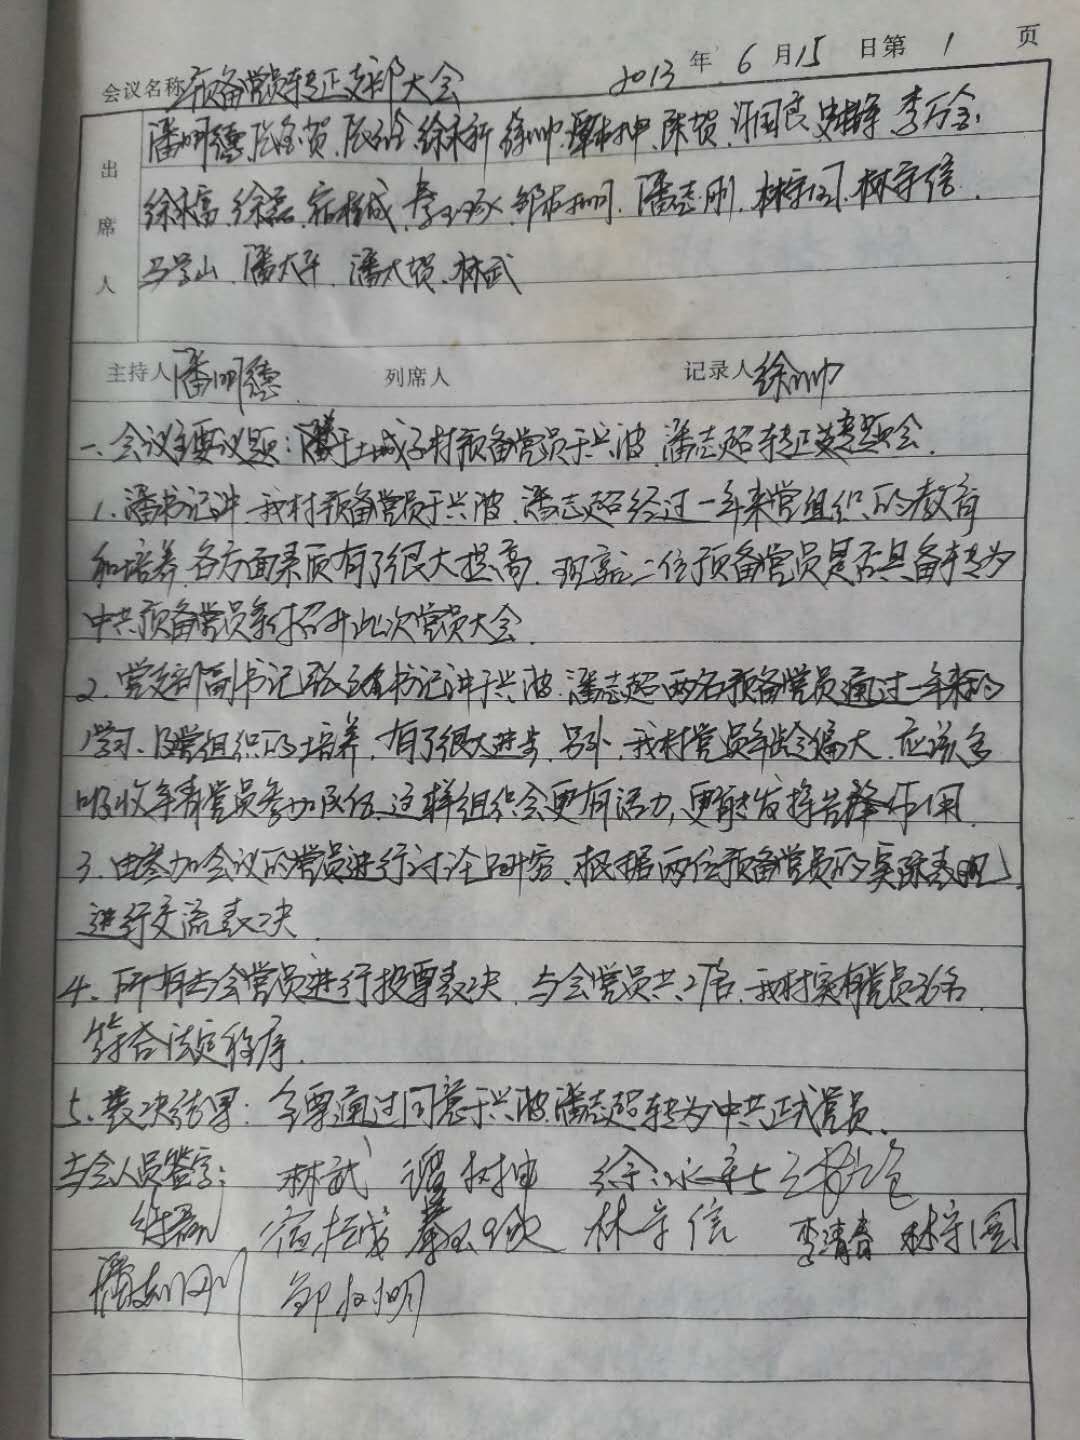 2013年6月15日第1页
会议名称 预备党员转正支部大会
出席人 潘明德、徐永新、徐帅、陈贺、许国良、李万全、
徐永富、徐磊、宿桂成、潘志刚、林守国、林守信、
马学山、潘大平、潘大贺、林武
主持人 潘明德 列席人 记录人 徐帅
一、会议主要议题：关于土城子村预备党员于兴波、潘志超转正专题会、
1、潘书记讲、我村预备党员于兴波、潘志超经过一年来党组织的教育
和培养、各方面素质有了很大提高、现就二位预备党员是否具备转为
中共预备党员条件召开此次党员大会、
2、党支部副书记张书记讲于兴波、潘志超两名预备党员通过一年来的
学习、及党组织的培养、有了很大进步、另外、我村党员年龄偏大、应该多
吸收年青党员参加队伍、这样组织会更有活力，更能发挥先锋作用、
3、由参加会议的党员进行讨论研究、根据两位预备党员的实际表现、
进行交流表决、
4、所有与会党员进行投票表决、与会党员共21名、我村实有党员36名
符合法定程序、
5、表决结果：全票通过同意于兴波、潘志超转为中共正式党员、
与会人员签字：林武 谭树坤 徐永新
徐磊 宿桂成 林守信 李清春 林守国
潘志刚